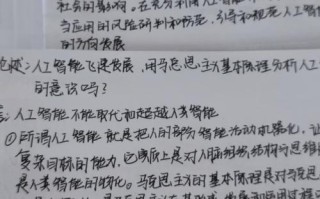 社会的影响。在充分利用人工智能
当应用的风险研判和防范，引导和规范人工智
的方向发展
：人工智能飞速发展，用马克思主义基本原理分析人工
的意识吗？
：人工智能不能取代和超越人类智能
①所谓人工智能就是把人的部分智能活动机器化，让
复杂目标的能力，它实质上是对人脑组织结构与思维
是人类智能的物化。马克思主义的基本原理是对马克思